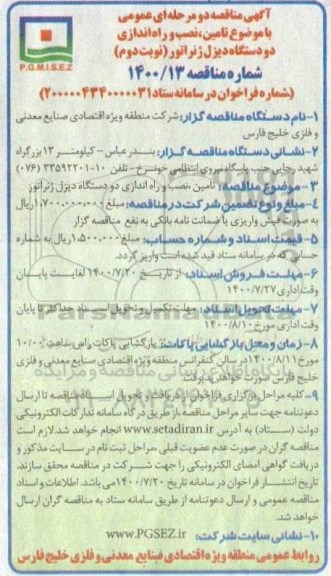 آگهی مناقصه دو مرحله‌ای عمومی
با موضوع تامین، نصب و راه اندازی
دو دستگاه دیزل ژنراتور (نوبت دوم)
شماره مناقصه ۱۴۰۰/۱۳
(شماره فراخوان در سامانه ستاد ۲۰۰۰۰۰۴۳۴۰۰۰۰۰۳۱)
P.G.M.I.S.E.Z
۱-نام دستگاه مناقصه گزار: شرکت منطقه ویژه اقتصادی صنایع معدنی
و فلزی خلیج فارس
۲-نشانی دستگاه مناقصه گزار: بندرعباس- کیلومتر ۱۳ بزرگراه
شهید رجایی جنب نیروگاه انتظامی خونسرخ- تلفن ۱۰-۳۳۵۹۲۲۰۱ (۰۷۶)
۳-موضوع مناقصه: تأمین، نصب و راه اندازی دو دستگاه دیزل ژنراتور
۴-مبلغ و نوع تضمین شرکت در مناقصه: مبلغ ۱,۷۰۰,۰۰۰,۰۰۰ ریال
به صورت فیش واریزی یا ضمانت نامه بانکی به نفع مناقصه گزار
۵- قیمت اسناد و شماره حساب: مبلغ ۱,۵۰۰,۰۰۰ ریال به شماره
حسابی که در سامانه ستاد قید شده است واریز گردد.
۶-مهلت فروش اسناد: از تاریخ ۱۴۰۰/۷/۲۰ لغایت پایان
وقت اداری ۱۴۰۰/۷/۲۷
۷-مهلت تحویل اسناد: مهلت تکمیل و تحویل اسناد حداکثر تا پایان
وقت اداری مورخ ۱۴۰۰/۸/۱۰
۸-زمان و محل بازگشایی پاکات: بازگشایی پاکات راس ساعت ۱۰:۰۰
مورخ ۱۴۰۰/۸/۱۱ در سالن کنفرانس منطقه ویژه اقتصادی صنایع معدنی و فلزی
خلیج فارس صورت خواهد پذیرفت.
۹-کلیه مراحل برگزاری فراخوان از دریافت و تحویل اسناد مناقصه تا ارسال
دعوتنامه جهت سایر مراحل مناقصه، از طریق درگاه سامانه تدارکات الکترونیکی
دولت (ستاد) به آدرس www.setadiran.ir انجام خواهد شد. لازم است
مناقصه گران در صورت عدم عضویت قبلی، مراحل ثبت نام در سایت مذکور و
دریافت گواهی امضای الکترونیکی را جهت شرکت در مناقصه محقق سازند.
تاریخ انتشار فراخوان در سامانه تاریخ ۱۴۰۰/۷/۲۰ می باشد. اطلاعات و اسناد
مناقصه عمومی و ارسال دعوتنامه از طریق سامانه ستاد به مناقصه گران ارسال
خواهد شد.
۱۰-نشانی سایت شرکت: www.PGSEZ.ir
روابط عمومی منطقه ویژه اقتصادی صنایع معدنی و فلزی خلیج فارس